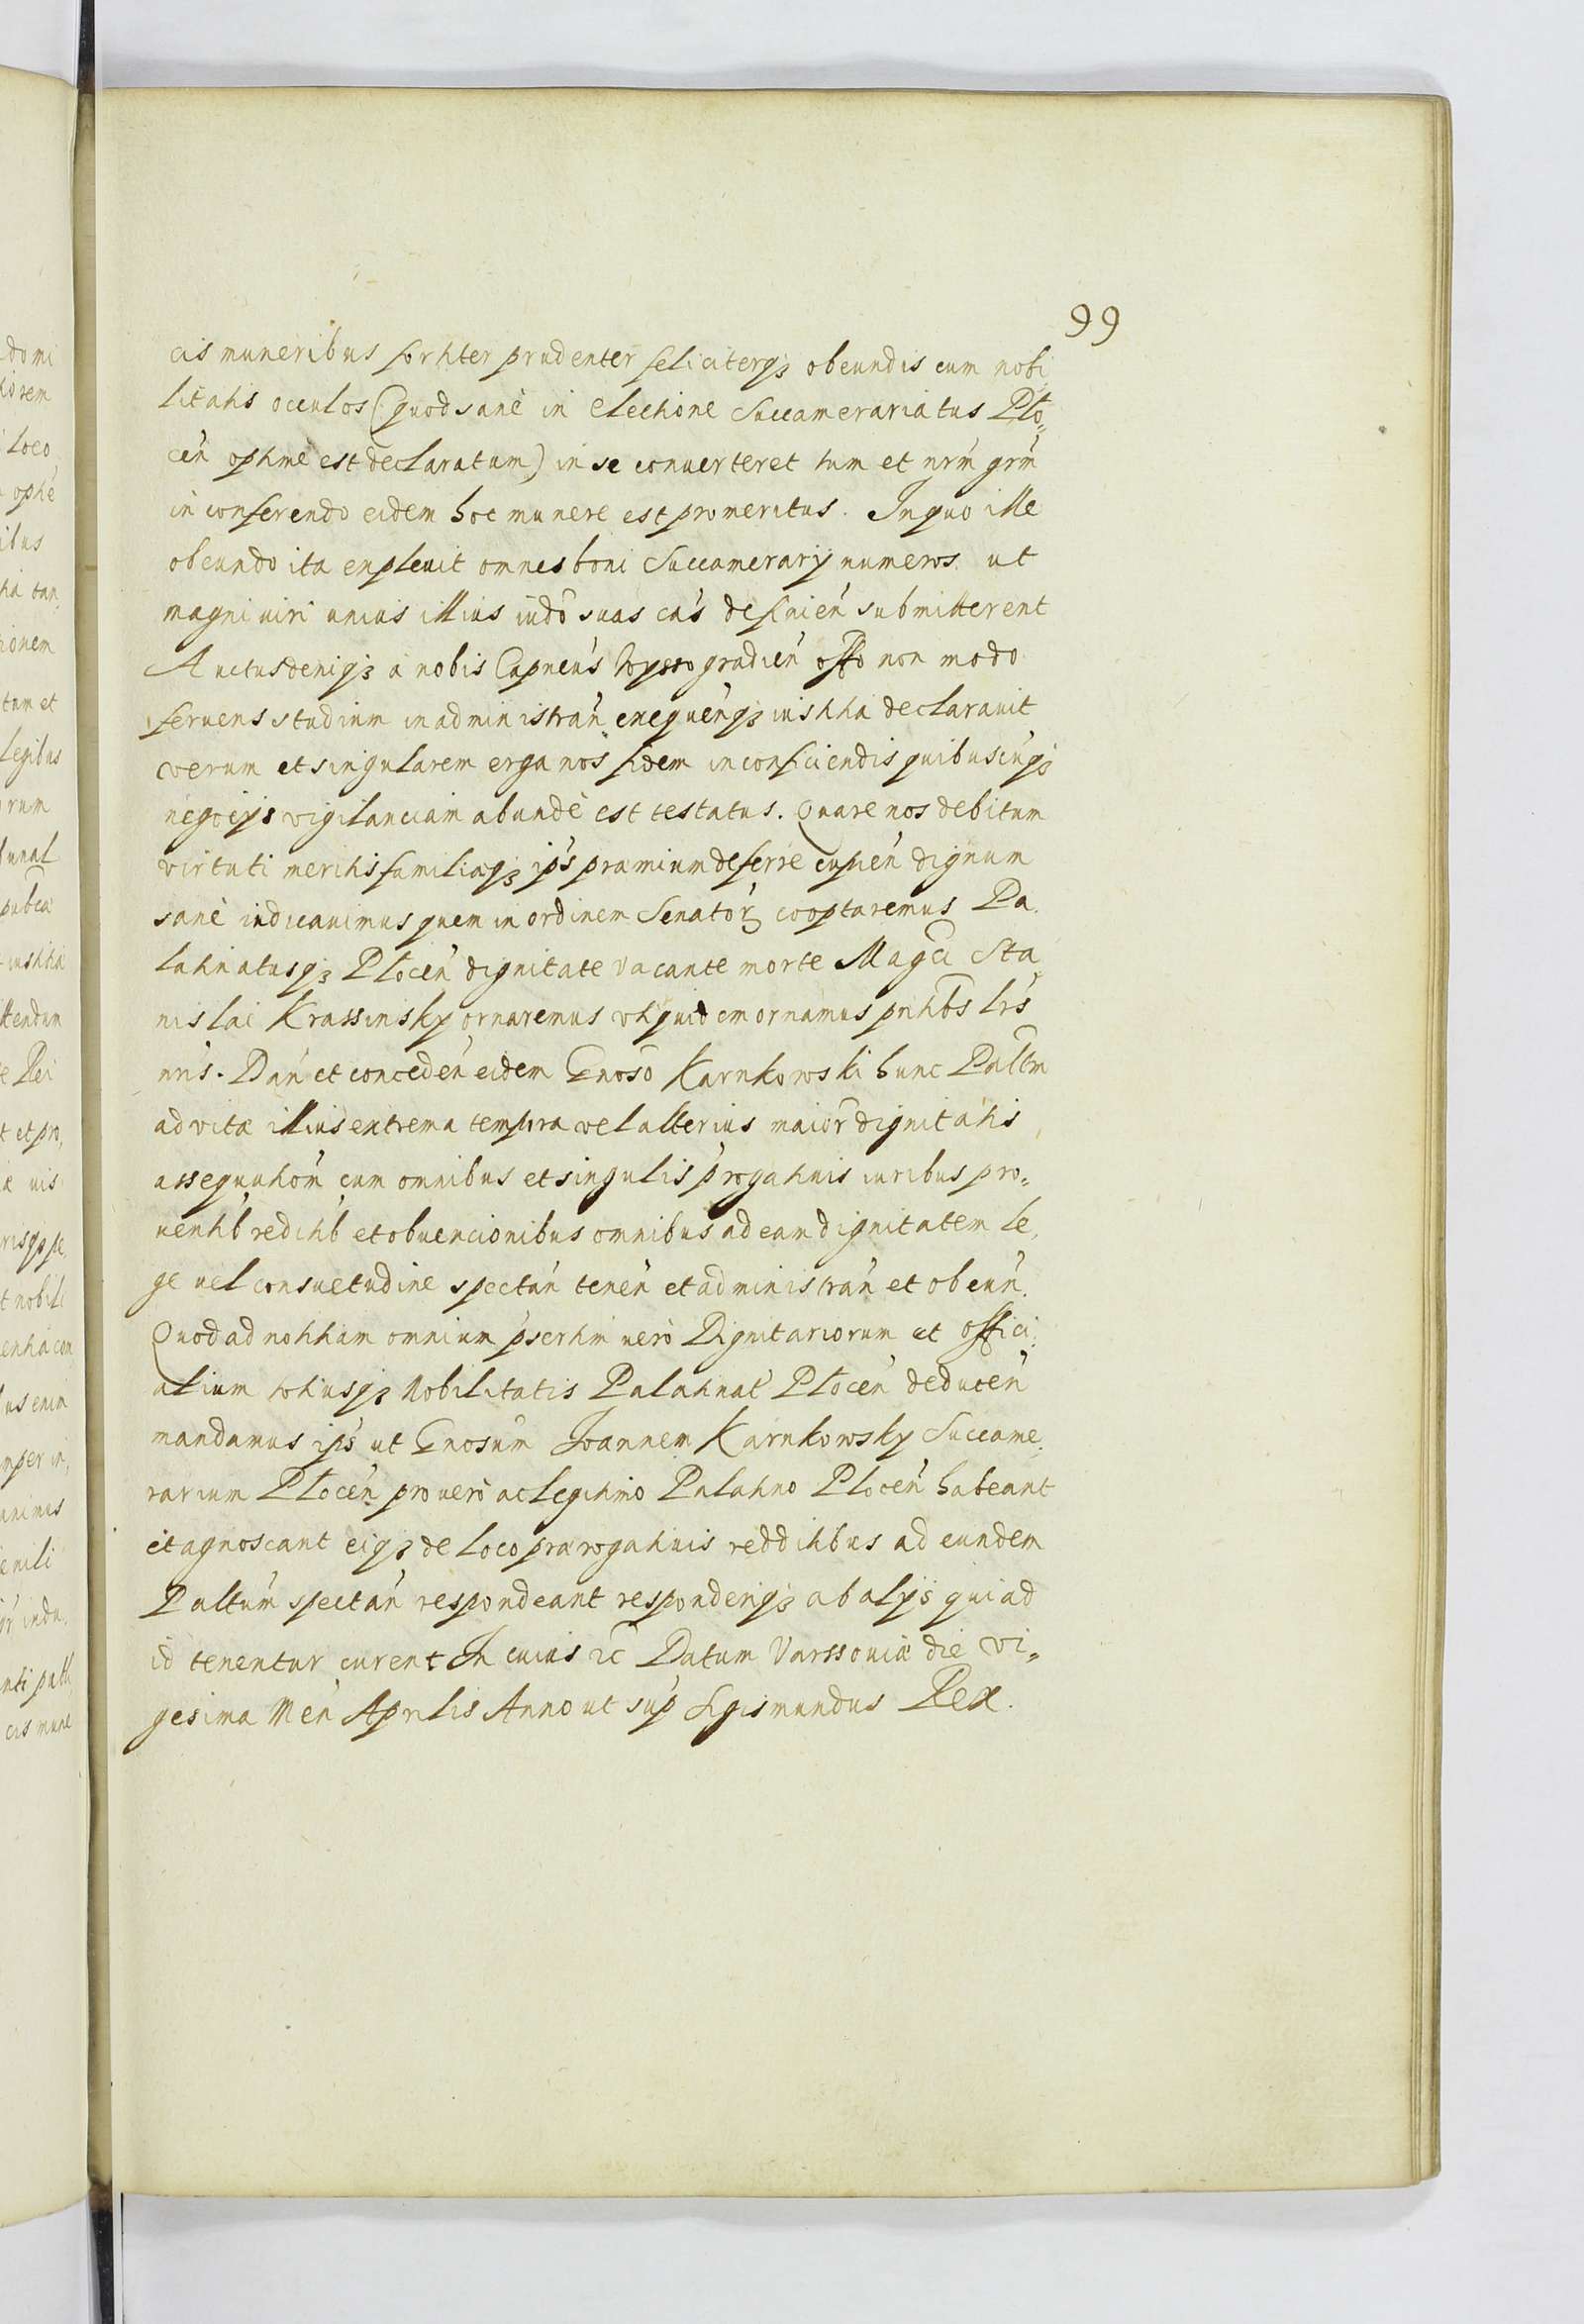 99
cis muneribus fortiter prudenter feliciterqȝ obeundis cum nobi
litatis occulos (quod sanè in electione Succamerariatus Plo=
cen̄ optimè est declaratum) in se conuerteret tum et nr̄m gr̄m
in conferendo eidem hoc munere est promeritus. In quo ille
obeundo ita expleuit omnes boni Succamerarij numeros ut
magni uiri unius illius iudō suas cās definien̄ submitterent
Auctus deniqȝ a nobis Capneūs gradien̄ offō non modo
feruens studium in administran̄ exequen̄qȝ iustitia declarauit
verum et singularem erga nos fidem in conficiendis quibuscūqȝ
negocijs vigilanciam abundè est testatus. Quare nos debitum
virtuti meritis familiaqȝ ip̄s pramium deferre cupien̄ dignum
sanè iudicauimus quem in ordinem Senatoꝝ cooptaremus Pa
latinatusqȝ Plocen̄ dignitate vacante morte Magci Sta
nislai Krassinsky ornaremus vti quidem ornamus pntibs lr̄s
nr̄is. Dan̄ et conceden̄ eidem Gnoso Karnkowski hunc Paltm
ad vitæ illius extrema tempora vel alterius maior̄ dignitatis
assequution̄ cum omnibus et singulis p̄rogatiuis iuribus pro=
uentib̄ reditib̄ et obuencionibus omnibus ad eam dignitatem le
ge uel consuetudine spectan̄ tenen̄ et administran̄ et obeun̄.
Quod ad notitiam omnium p̄sertim uerò Dignitariorum et offici
alium totiusqȝ Nobilitatis Palatinat̄ Plocen̄ deducen̄
mandamus ip̄s ut Gnosum Joannem Karnkowsky Succame
rarium Plocen̄ pro uero ac legitimo Palatino Plocen̄ habeant
et agnoscant eiqȝ de loco prærogatiuis redditibus ad eundem
Paltum̄ spectan̄ respondeant responderiqȝ ab alijs qui ad
id tenentur curent In cuius ꝛc̄ Datum Varssouiæ die vi=
gesima Men̄ Aprilis Anno ut sup̄ Sigismundus Rex.